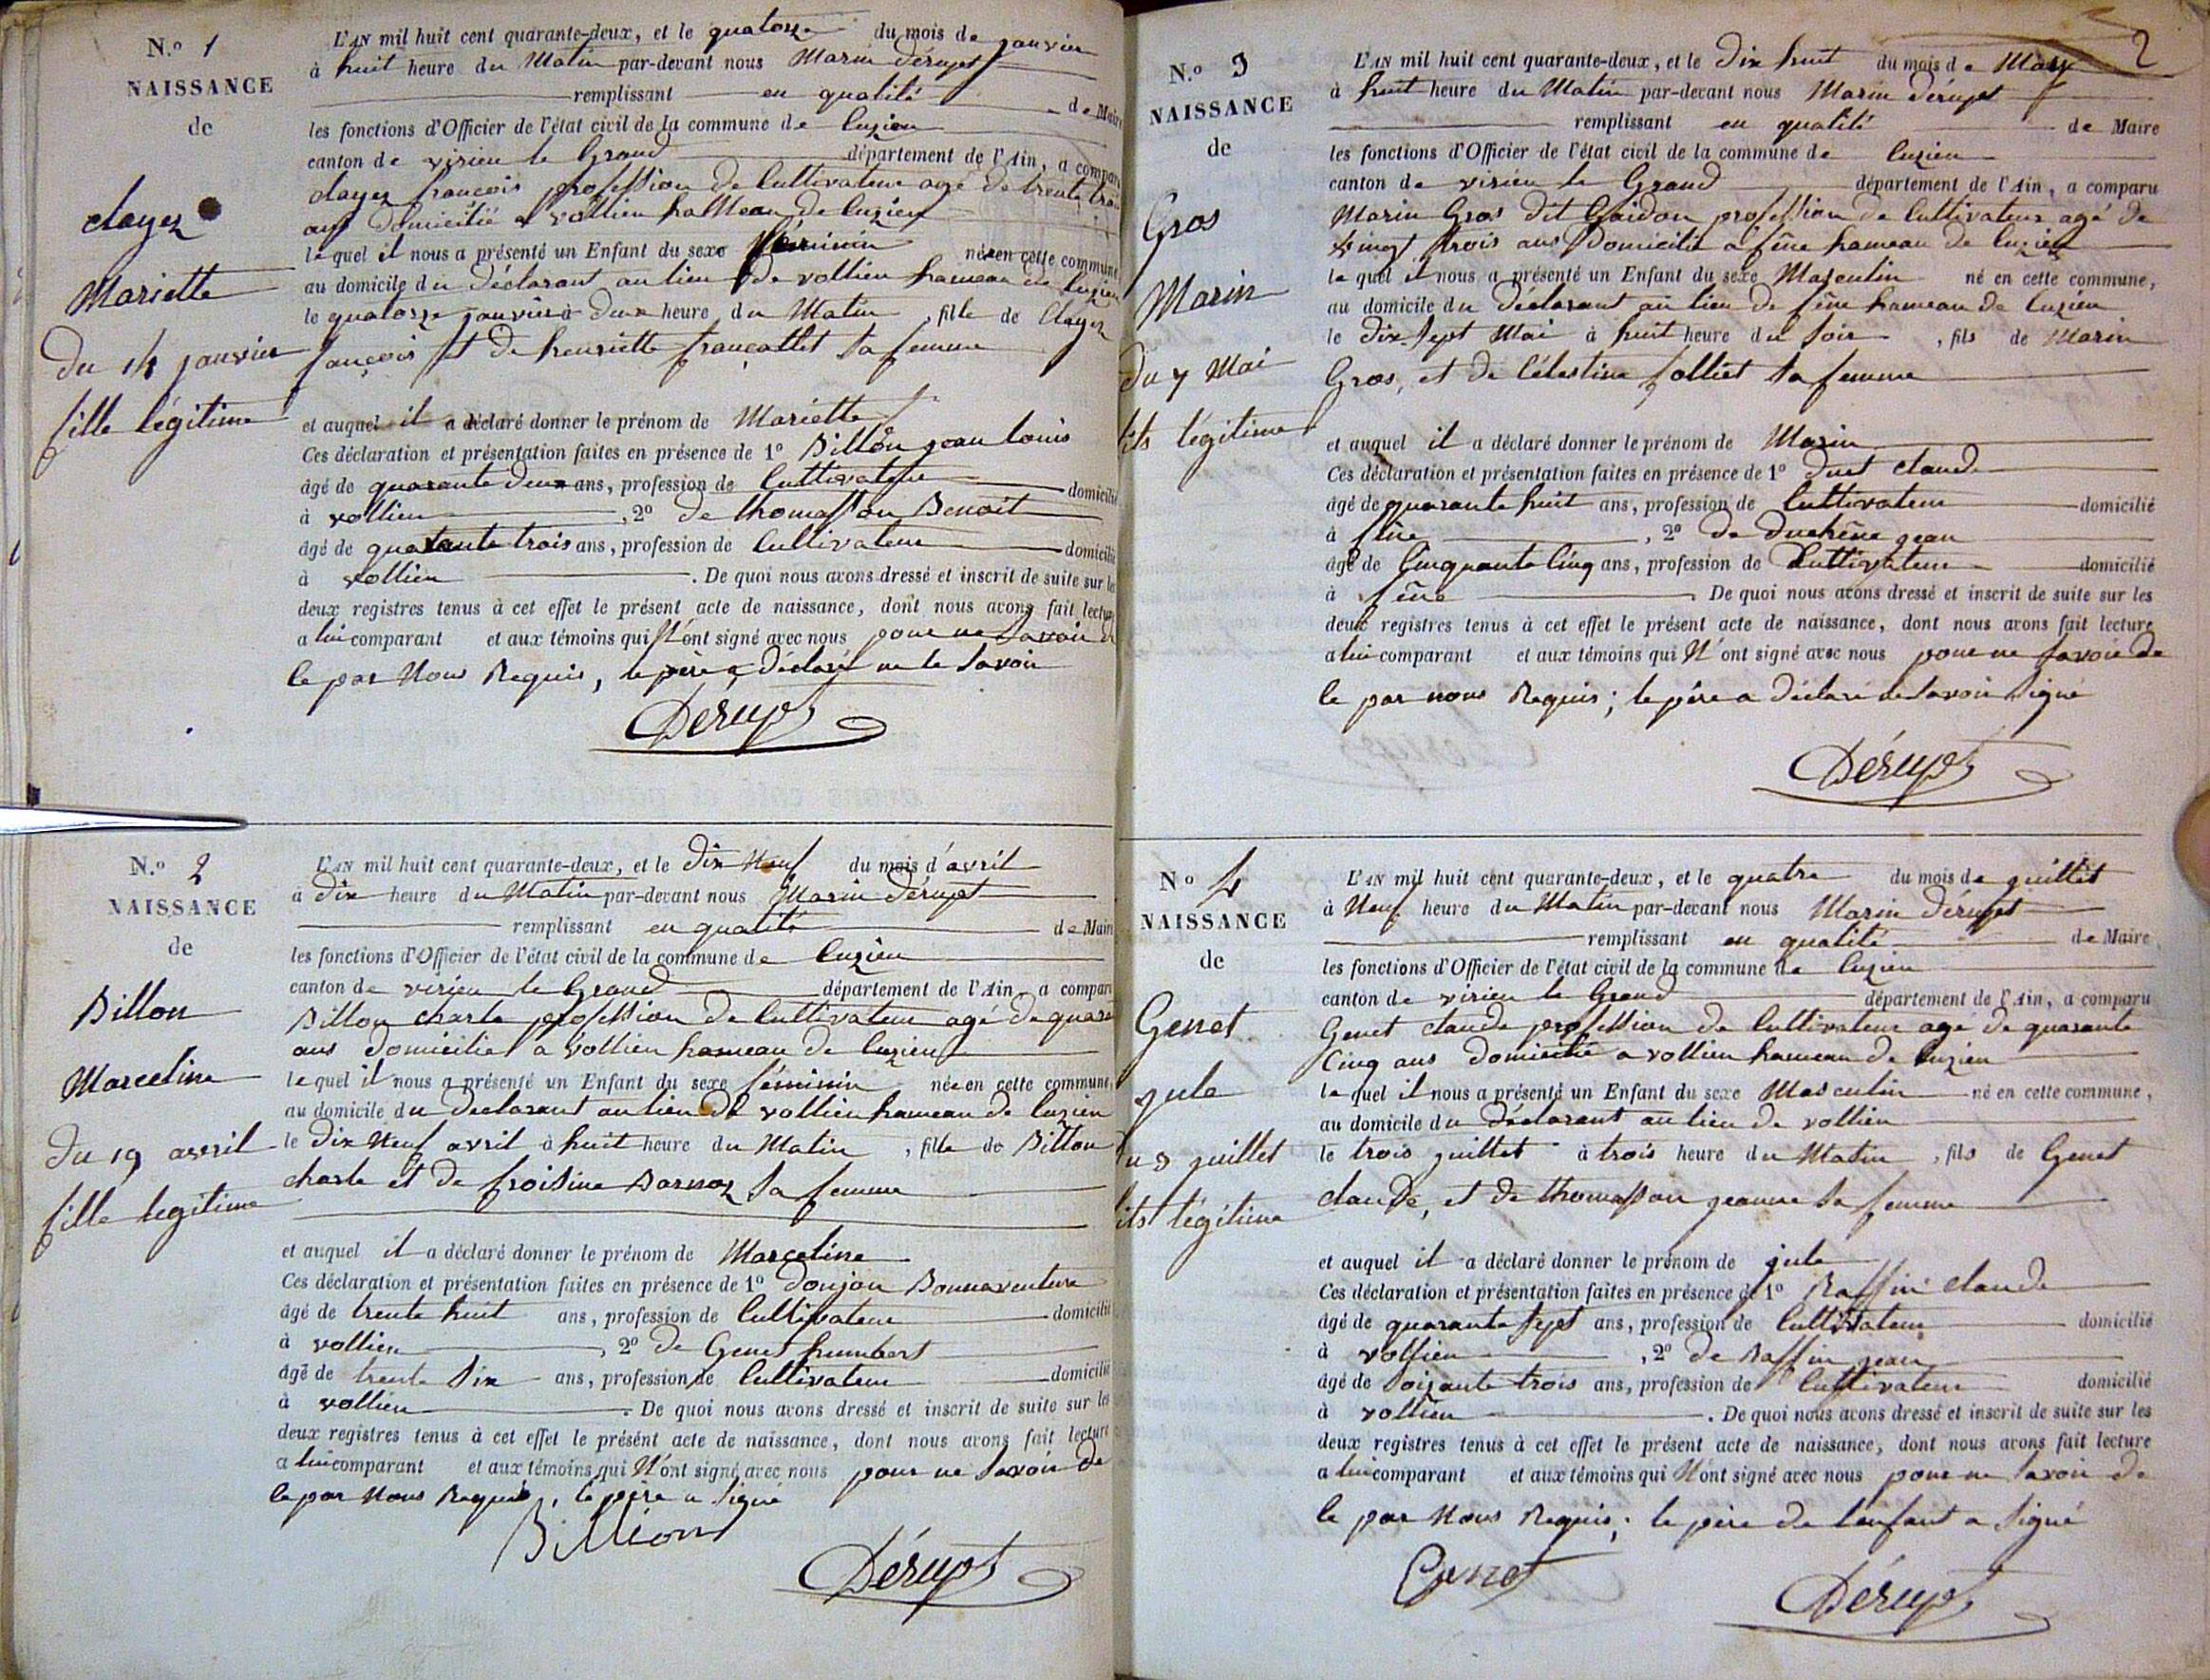 N.o 1
NAISSANCE
de
clayez
Mariette
du 14 janvier
fille légitime
L'AN mil huit cent quarante-deux, et le quatorze du mois de janvier
à huit heure du Matin par-devant nous Marin Dérupt
remplissant en qualité de Maire
les fonctions d'Officier de l'état civil de la commune de luzieu
canton de virieu le Grand département de l'Ain, a comparu
clayez francois profession de Cultivateur agé de trente trois
ans domicilié a vollien hameau de luzieu
le quel il nous a présenté un Enfant du sexe féminin née en cette commune
au domicile du déclarant au lieu de vollien hameau de luzieu
le quatorze janvier à deux heure du Matin , fille de Clayez
françois et de henriette françallet sa femme
et auquel il a déclaré donner le prénom de Mariette
Ces déclaration et présentation faites en présence de 1o Billon jean louis
âgé de quarante deux ans, profession de Cultivateur domicilié
à vollien , 2o de thomasson Benoit
âgé de quarante trois ans, profession de Cultivateur domicilié
à vollien . De quoi nous avons dressé et inscrit de suite sur les
deux registres tenus à cet effet le présent acte de naissance, dont nous avons fait lecture
a lui comparant et aux témoins qui N'ont signé avec nous pour ne savoir de
le par Nous Requis, le père a déclaré ne le savoir
Dérupt
N.o 2
NAISSANCE
de
Billon
Marceline
du 19 avril
fille legitime
L'AN mil huit cent quarante-deux, et le dix Neuf du mois d'avril
à dix heure du Matin par-devant nous Marin Dérupt
remplissant en qualité de Maire
les fonctions d'Officier de l'état civil de la commune de luzieu
canton de virieu le Grand département de l'Ain a comparu
Billon charle profession de Cultivateur agé de quarante
ans domicilié a vollien hameau de luzieu
le quel il nous a présenté un Enfant du sexe féminin née en cette commune,
au domicile du declarant au lieu de vollien hameau de luzieu
le dix Neuf avril à huit heure du Matin , fille de Billon
charle et de froisine Barnoz sa femme
et auquel il a déclaré donner le prénom de Marceline
Ces déclaration et présentation faites en présence de 1o Doujon Bonnaventure
âgé de trente huit ans, profession de Cultivateur domicilié
à vollien , 2o de Genet humbert
âgé de trente six ans, profession de Cultivateur domicilié
à vollien . De quoi nous avons dressé et inscrit de suite sur les
deux registres tenus à cet effet le présent acte de naissance, dont nous avons fait lecture
a lui comparant et aux témoins qui N'ont signé avec nous pour ne savoir de
le par Nous Requis, le père a signé
Billion
Dérupt
2
N.o 3
NAISSANCE
de
Gros
Marin
du 7 Mai
fils légitime
L'AN mil huit cent quarante-deux, et le dix huit du mois de May
à huit heure du Matin par-devant nous Marin Dérupt
remplissant en qualité de Maire
les fonctions d'Officier de l'état civil de la commune de luzieu
canton de virieu le Grand département de l'Ain, a comparu
Marin Gros dit Gaidon profession de Cultivateur agé de
vingt trois ans domicilié a hameau de luzieu
le quel il nous a présenté un Enfant du sexe Masculin né en cette commune,
au domicile du déclarant au lieu de hameau de luzieu
le dix sept Mai à huit heure du soir , fils de Marin
Gros, et de Célestine folliet sa femme
et auquel il a déclaré donner le prénom de Marin
Ces déclaration et présentation faites en présence de 1o claude
âgé de quarante huit ans, profession de Cultivateur domicilié
à , 2o de Duchêne jean
âgé de Cinquante Cinq ans, profession de Cultivateur domicilié
à . De quoi nous avons dressé et inscrit de suite sur les
deux registres tenus à cet effet le présent acte de naissance, dont nous avons fait lecture
a lui comparant et aux témoins qui N'ont signé avec nous pour ne savoir de
le par nous Requis; le père a déclaré ne savoir signé
Dérupt
No 4
NAISSANCE
de
Genet
jule
du 3 juillet
fils légitime
L'AN mil huit cent quarante-deux, et le quatre du mois de juillet
à Neuf heure du Matin par-devant nous Marin Dérupt
remplissant en qualité de Maire
les fonctions d'Officier de l'état civil de la commune de luzieu
canton de virieu le Grand département de l'Ain, a comparu
Genet claude profession de Cultivateur agé de quarante
Cinq ans domicilié a vollien hameau de luzieu
le quel il nous a présenté un Enfant du sexe Masculin né en cette commune,
au domicile du déclarant au lieu de vollien
le trois juillet à trois heure du Matin , fils de Genet
claude, et de thomasson jeanne sa femme
et auquel il a déclaré donner le prénom de jule
Ces déclaration et présentation faites en présence de 1o Raffin claude
âgé de quarante sept ans, profession de Cultivateur domicilié
à vollien , 2o de Raffin jean
âgé de soizante trois ans, profession de Cultivateur domicilié
à vollien . De quoi nous avons dressé et inscrit de suite sur les
deux registres tenus à cet effet le présent acte de naissance, dont nous avons fait lecture
a lui comparant et aux témoins qui N'ont signé avec nous pour ne savoir de
le par Nous Requis; le père de lenfant a signé
Genet
Dérupt